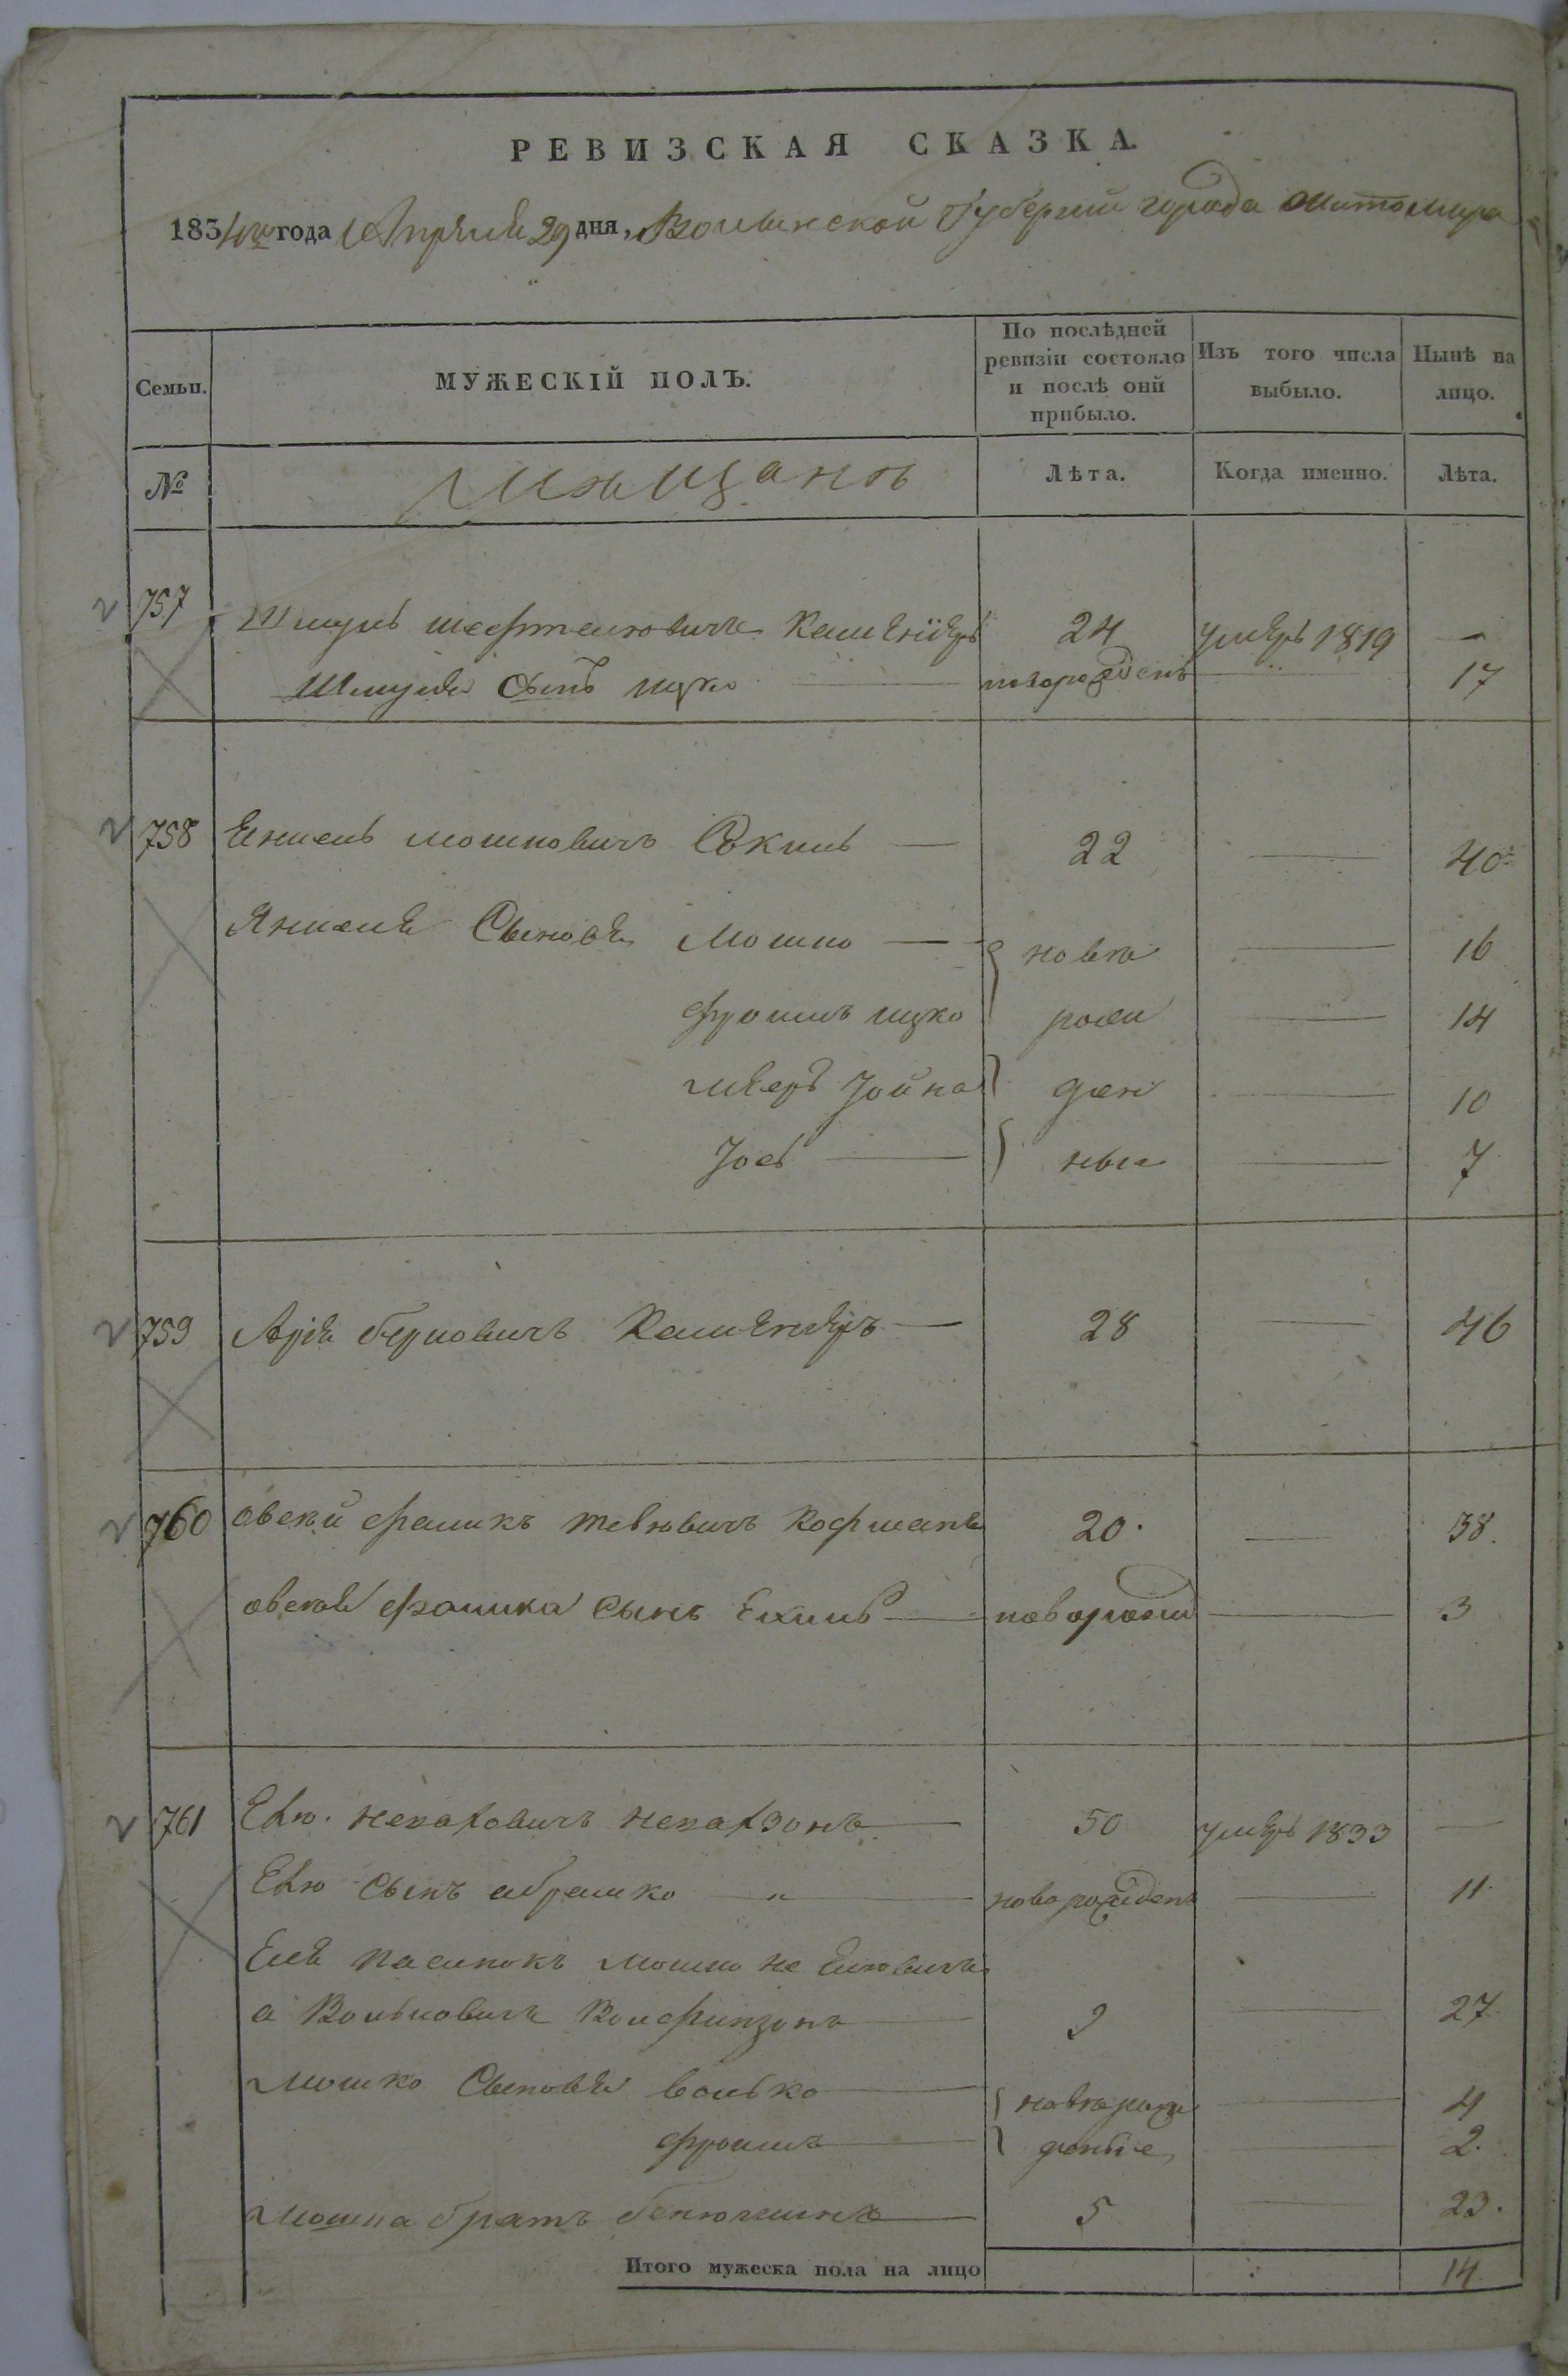 РЕВИЗСКАЯ СКАЗКА.
1834го года Апреля 29 дня, Волынской Губернии города Житомира
Семьи. МУЖЕСКІЙ ПОЛЪ. По послѣдней ревизіи состояло и послѣ оній прибыло. Изъ того числа выбыло. Нынѣ на лицо.
№ Мѣщанъ Лѣта. Когда именно. Лѣта.
757 Шмуль Шефтелювичъ 24 умеръ 1819 —
Шмуля сынъ Ицко новорожденъ — 17
758 мошковичъ — 22 — 40
Сыновья Мошко — ново — 16
Фроимъ Ицко рож — 14
Мееръ Іойна ден — 10
Іось — ные — 7
759 Арія Берковичъ — 28 — 46
760 Овсей Фаликъ Тевювичъ Кофманъ 20. — 38.
Овсея Фалика сынъ Ехиль — новорожд — 3
761 Елю Нехаловичъ — 50 умеръ 1833 —
Елю сынъ Абрамко — новорожденъ — 11.
Еля пасинокъ Мошко не Елювичъ
а Волковичъ Волфинзонъ — 9 — 27.
Мошко Сыновья Волько — новорож — 4
Фроимъ — деные — 2.
Мошка братъ Бенюминъ — 5 — 23.
Итого мужеска пола на лицо 14